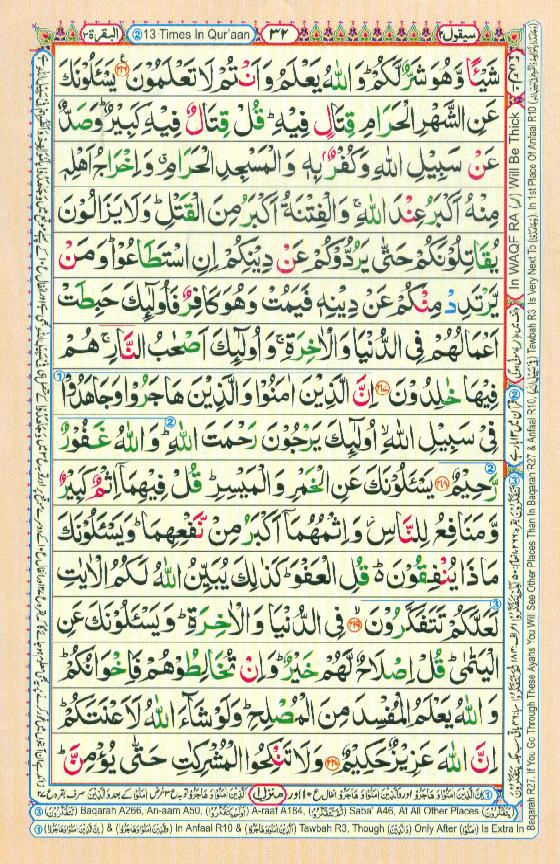 سيقول٢ ٣٢ ② 13 Times In Qur'aan البقرة٢
شَيْـًٔا وَّهُوَ شَرٌّ لَّكُمْ ؕ وَاللّٰهُ يَعْلَمُ وَاَنْتُمْ لَا تَعْلَمُوْنَ ﴿۲۱۶﴾ يَسْـَٔلُوْنَكَ
عَنِ الشَّهْرِ الْحَرَامِ قِتَالٍ فِيْهِ ؕ قُلْ قِتَالٌ فِيْهِ كَبِيْرٌ ؕ وَصَدٌّ
عَنْ سَبِيْلِ اللّٰهِ وَكُفْرٌۢ بِهٖ وَالْمَسْجِدِ الْحَرَامِ ۗ وَاِخْرَاجُ اَهْلِهٖ
مِنْهُ اَكْبَرُ عِنْدَ اللّٰهِ ۚ وَالْفِتْنَةُ اَكْبَرُ مِنَ الْقَتْلِ ؕ وَلَا يَزَالُوْنَ
يُقَاتِلُوْنَكُمْ حَتّٰى يَرُدُّوْكُمْ عَنْ دِيْنِكُمْ اِنِ اسْتَطَاعُوْا ؕ وَمَنْ
يَّرْتَدِدْ مِنْكُمْ عَنْ دِيْنِهٖ فَيَمُتْ وَهُوَ كَافِرٌ فَاُولٰٓئِكَ حَبِطَتْ
اَعْمَالُهُمْ فِى الدُّنْيَا وَالْاٰخِرَةِ ۚ وَاُولٰٓئِكَ اَصْحٰبُ النَّارِ ۚ هُمْ
فِيْهَا خٰلِدُوْنَ ﴿۲۱۷﴾ اِنَّ الَّذِيْنَ اٰمَنُوْا وَالَّذِيْنَ هَاجَرُوْا وَجَاهَدُوْا ①
فِىْ سَبِيْلِ اللّٰهِ ۙ اُولٰٓئِكَ يَرْجُوْنَ رَحْمَتَ اللّٰهِ ؕ ② وَاللّٰهُ غَفُوْرٌ
رَّحِيْمٌ ﴿۲۱۸﴾ ② يَسْـَٔلُوْنَكَ عَنِ الْخَمْرِ وَالْمَيْسِرِ ؕ قُلْ فِيْهِمَاۤ اِثْمٌ كَبِيْرٌ
وَّمَنَافِعُ لِلنَّاسِ ؗ وَاِثْمُهُمَاۤ اَكْبَرُ مِنْ نَّفْعِهِمَا ؕ وَيَسْـَٔلُوْنَكَ
مَاذَا يُنْفِقُوْنَ ؕ۬ قُلِ الْعَفْوَ ؕ كَذٰلِكَ يُبَيِّنُ اللّٰهُ لَكُمُ الْاٰيٰتِ
لَعَلَّكُمْ تَتَفَكَّرُوْنَ ﴿۲۱۹﴾ ③ فِى الدُّنْيَا وَالْاٰخِرَةِ ؕ وَيَسْـَٔلُوْنَكَ عَنِ
الْيَتٰمٰى ؕ قُلْ اِصْلَاحٌ لَّهُمْ خَيْرٌ ؕ وَاِنْ تُخَالِطُوْهُمْ فَاِخْوَانُكُمْ ؕ
وَاللّٰهُ يَعْلَمُ الْمُفْسِدَ مِنَ الْمُصْلِحِ ؕ وَلَوْ شَآءَ اللّٰهُ لَاَعْنَتَكُمْ ؕ
اِنَّ اللّٰهَ عَزِيْزٌ حَكِيْمٌ ﴿۲۲۰﴾ وَلَا تَنْكِحُوا الْمُشْرِكٰتِ حَتّٰى يُؤْمِنَّ ؕ
منزل١
③ (تَتَفَكَّرُوْنَ) Baqarah A266, An-aam A50, (يَتَفَكَّرُوْنَ) A-raaf A184, (تَتَفَكَّرُوْا) Saba' A46, At All Other Places (يَتَفَكَّرُوْنَ)
① In Anfaal R10 & Tawbah R3, Though Only After Is Extra In
Baqarah R27. If You Go Through These Ayans You Will See Other Places Than In Baqarah R27 & Anfaal R10, Tawbah R3 Is Very Next To In 1st Place Of Anfaal R10
In WAQF RA (ر) Will Be Thick